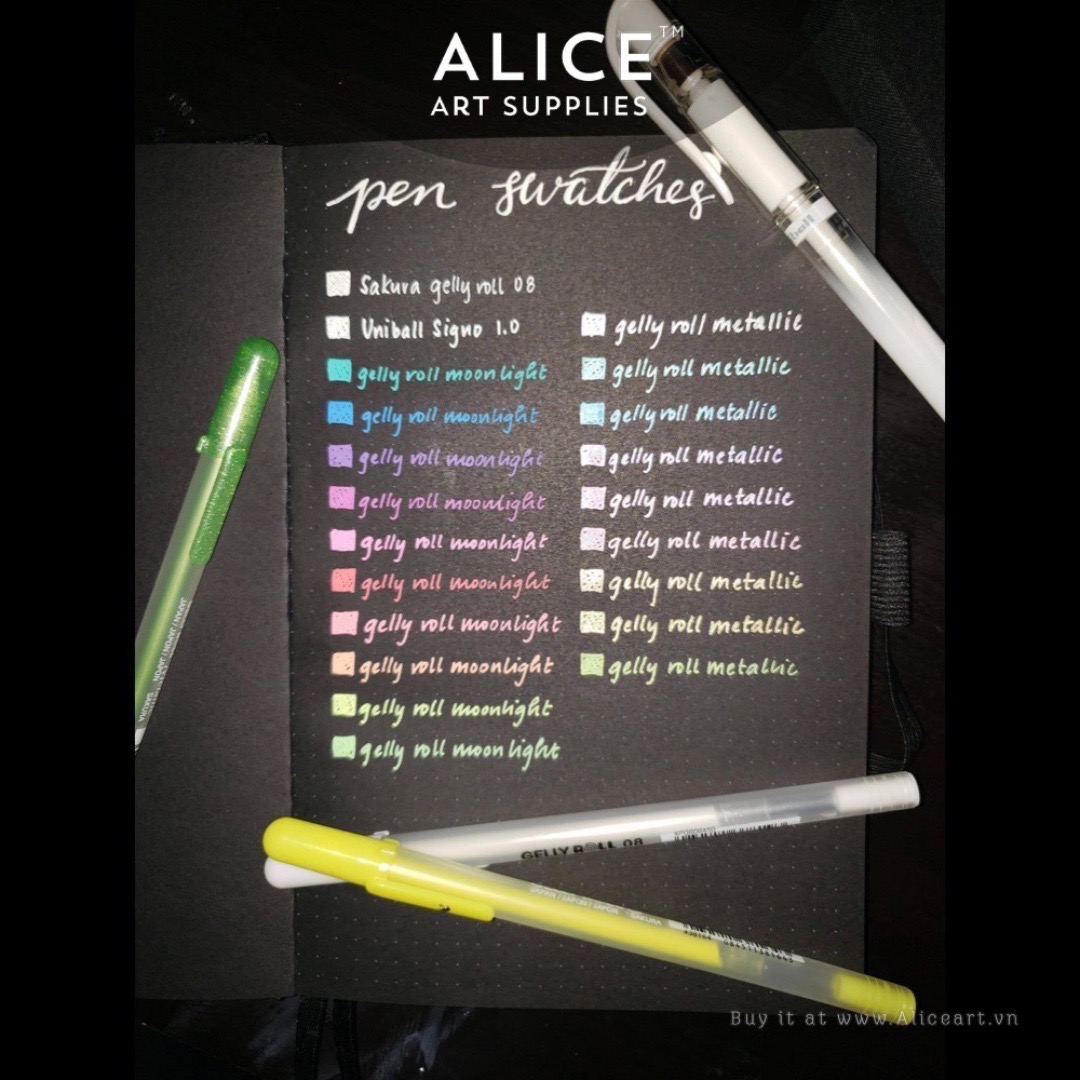 ALICE™
ART SUPPLIES
pen swatches
Sakura gelly roll 08
Uniball Signo 1.0
gelly roll moonlight
gelly roll moonlight
gelly roll moonlight
gelly roll moonlight
gelly roll moonlight
gelly roll moonlight
gelly roll moonlight
gelly roll moonlight
gelly roll moonlight
gelly roll moonlight
gelly roll metallic
gelly roll metallic
gelly roll metallic
gelly roll metallic
gelly roll metallic
gelly roll metallic
gelly roll metallic
gelly roll metallic
gelly roll metallic
ball
JAPAN / JAPON / JAPÓN
SAKURA
GELLY ROLL 08
JAPAN / JAPON / JAPÓN SAKURA
Buy it at www.Aliceart.vn